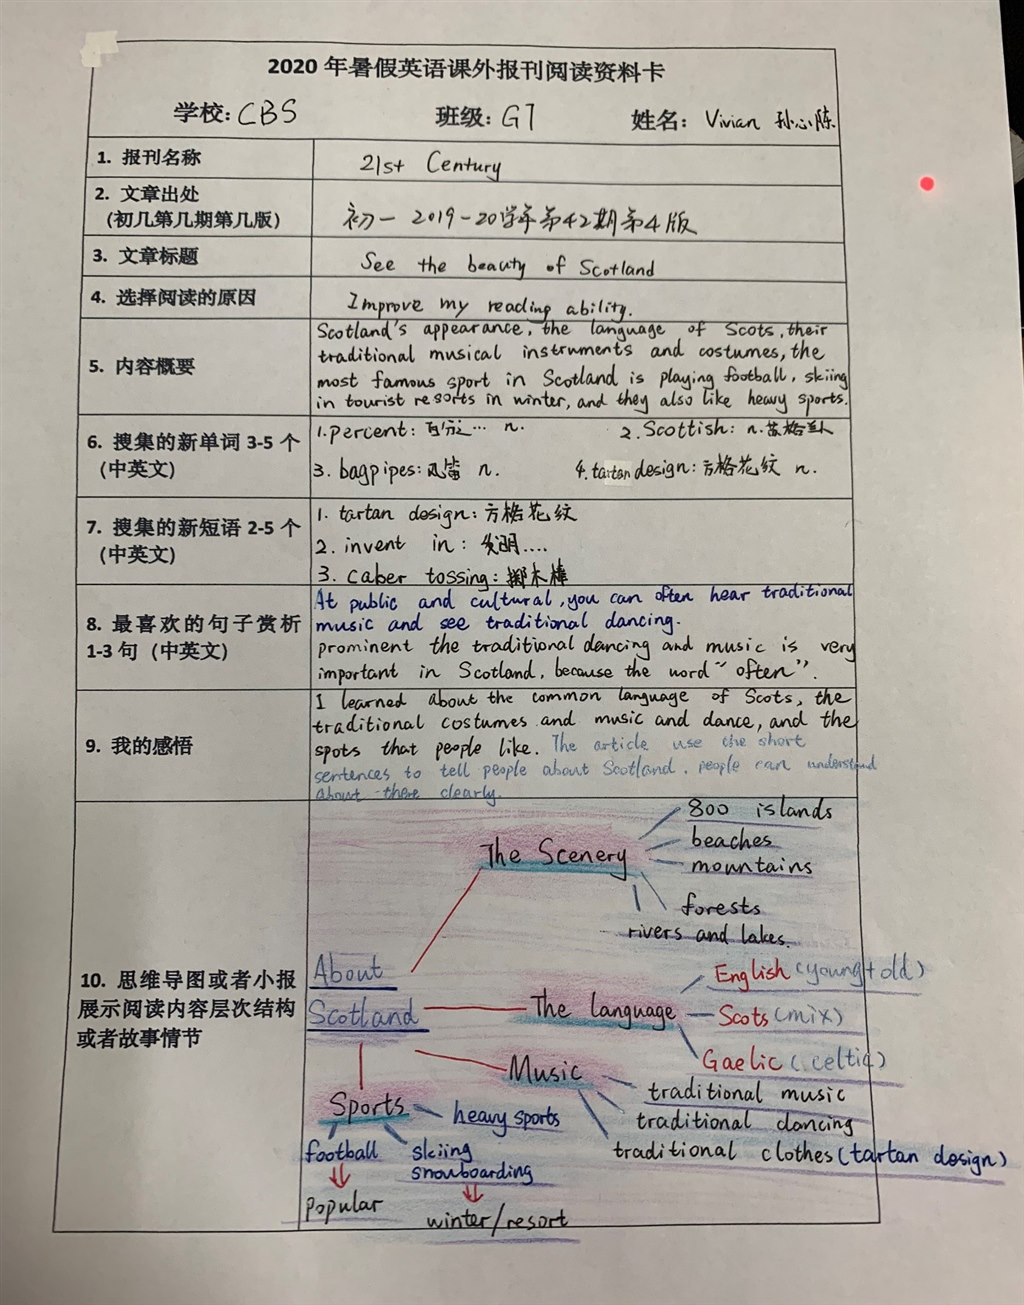 2020 年暑假英语课外报刊阅读资料卡
学校: CBS 班级: G7 姓名: Vivian 孙心陈
1. 报刊名称 21st Century
2. 文章出处
(初几第几期第几版) 初一 2019-20学年第42期第4版
3. 文章标题 See the beauty of Scotland
4. 选择阅读的原因 Improve my reading ability.
5. 内容概要
Scotland's appearance, the language of Scots, their
traditional musical instruments and costumes, the
most famous sport in Scotland is playing football, skiing
in tourist resorts in winter, and they also like heavy sports.
6. 搜集的新单词 3-5 个
(中英文)
1. percent: 百分之… n. 2. Scottish: n. 苏格兰人
3. bagpipes: 风笛 n. 4. tartan design: 方格花纹 n.
7. 搜集的新短语 2-5 个
(中英文)
1. tartan design: 方格花纹
2. invent in: 发明....
3. caber tossing: 掷木棒
8. 最喜欢的句子赏析
1-3 句 (中英文)
At public and cultural, you can often hear traditional
music and see traditional dancing.
prominent the traditional dancing and music is very
important in Scotland, because the word "often".
9. 我的感悟
I learned about the common language of Scots, the
traditional costumes and music and dance, and the
spots that people like. The article use the short
sentences to tell people about Scotland. people can understand
about there clearly.
10. 思维导图或者小报
展示阅读内容层次结构
或者故事情节
About
Scotland
The Scenery
800 islands
beaches
mountains
forests
rivers and lakes.
The language
English (young + old)
Scots (mix)
Gaelic (celtic)
Music
traditional music
traditional dancing
traditional clothes (tartan design)
Sports
heavy sports
football
skiing
snowboarding
popular
winter/resort